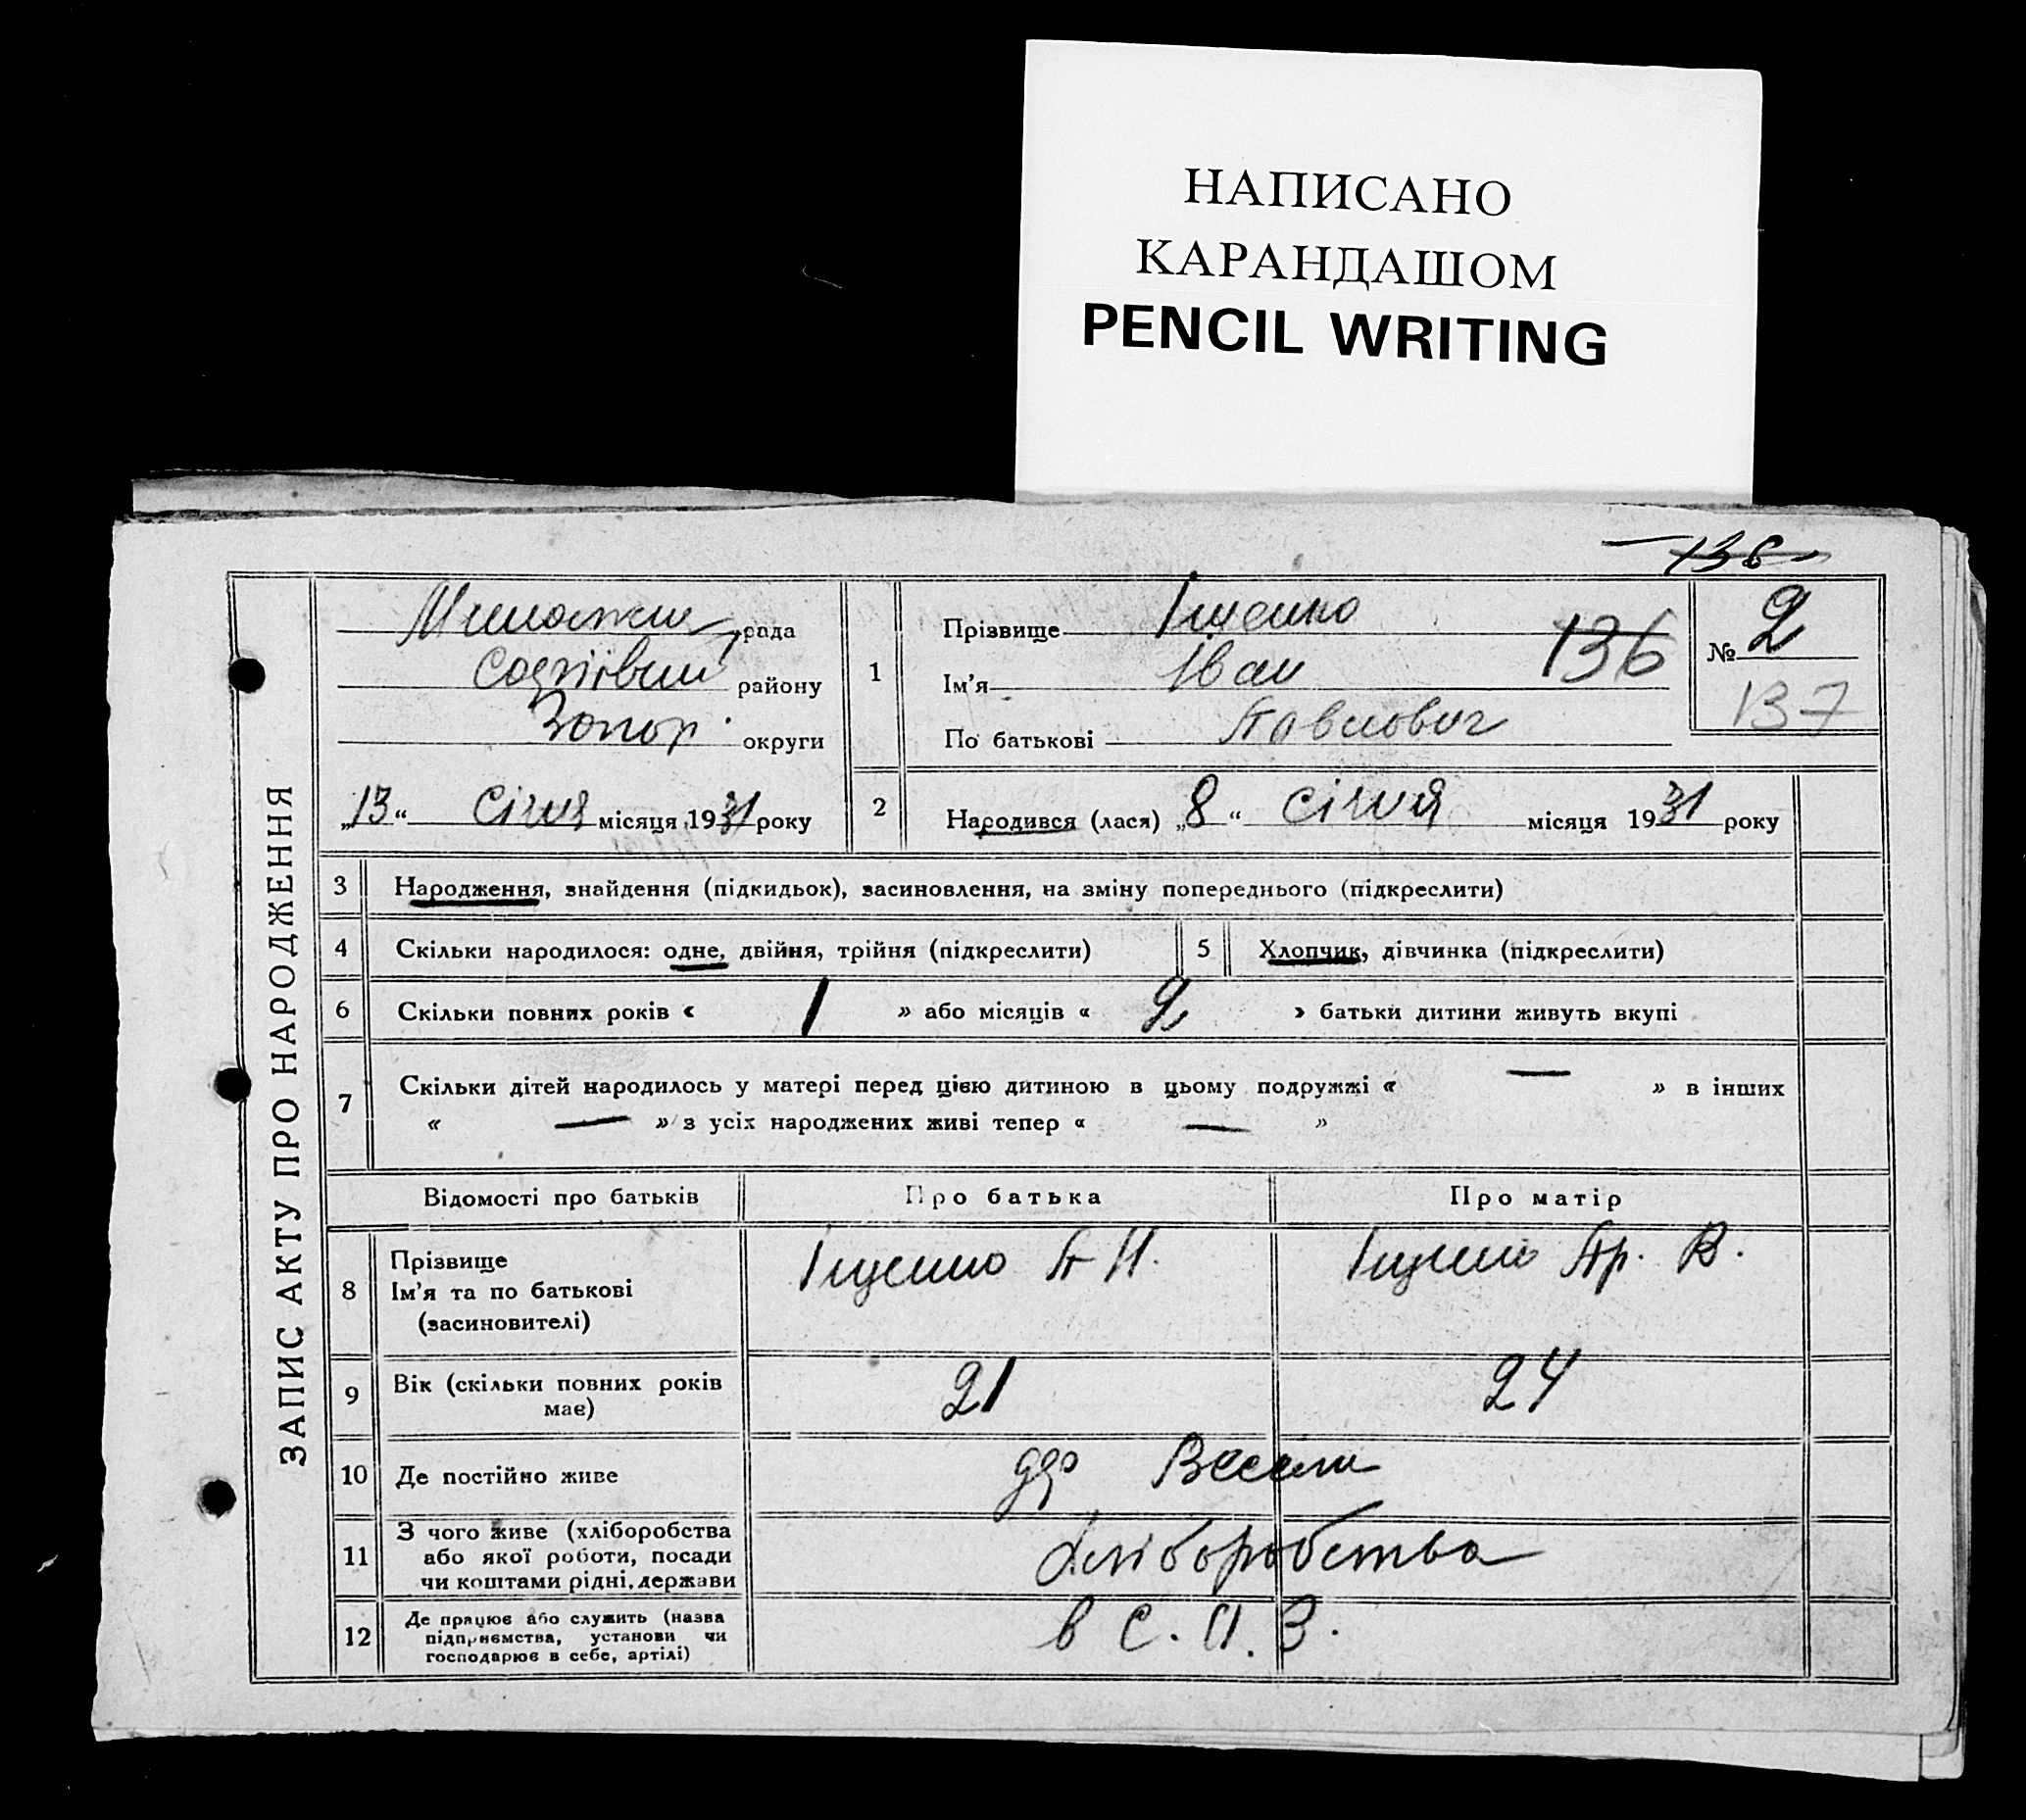 НАПИСАНО
КАРАНДАШОМ
PENCIL WRITING
136
ЗАПИС АКТУ ПРО НАРОДЖЕННЯ
рада
району
Запор. округи
„13“ Січня місяця 1931 року
1
Прізвище Іщенко
Ім'я Іван 136
По батькові Павлович
№ 2
137
2 Народився (лася) „8“ Січня місяця 1931 року
3 Народження, знайдення (підкидьок), засиновлення, на зміну попереднього (підкреслити)
4 Скільки народилося: одне, двійня, трійня (підкреслити)
5 Хлопчик, дівчинка (підкреслити)
6 Скільки повних років « 1 » або місяців « 2 » батьки дитини живуть вкупі
7 Скільки дітей народилось у матері перед цією дитиною в цьому подружжі « — » в інших
« — » з усіх народжених живі тепер « — »
Відомості про батьків Про батька Про матір
8 Прізвище
Ім'я та по батькові
(засиновителі)
Іщенко П. Іщенко Пр. В.
9 Вік (скільки повних років
має)
21 24
10 Де постійно живе
Весели
11 З чого живе (хліборобства
або якої роботи, посади
чи коштами рідні, держави
Хліборобства
12 Де працює або служить (назва
підприємства, установи чи
господарює в себе, артілі)
в С.О.З.